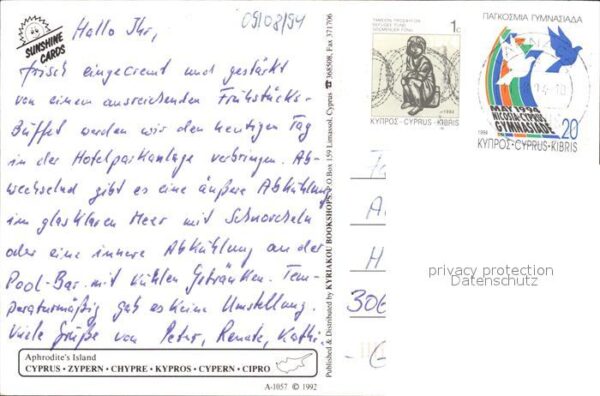 SUNSHINE
CARDS
09/08/94
Hallo Ihr,
frisch eingecremt und gestärkt
von einem ausreichenden Frühstücks-
Büffet werden wir den heutigen Tag
in der Hotelparkanlage verbringen. Ab-
wechselnd gibt es eine äußere Abkühlung
im glasklaren Meer mit Schnorcheln
oder eine innere Abkühlung an der
Pool-Bar mit kühlen Getränken. Tem-
peraturmäßig gab es keine Umstellung.
Viele Grüße von Peter, Renate, Kathi.
Aphrodite's Island
CYPRUS • ZYPERN • CHYPRE • KYPROS • CYPERN • CIPRO
A-1057 © 1992
Published & Distributed by KYRIAKOU BOOKSHOPS P.O Box 159 Limassol, Cyprus ☎ 368508, Fax 371706
REFUGEE FUND
1c
1994
ΚΥΠΡΟΣ-CYPRUS-KIBRIS
ΠΑΓΚΟΣΜΙΑ ΓΥΜΝΑΣΙΑΔΑ
MAY 1994
NICOSIA-CYPRUS
GYMNASIADE
20
1994
ΚΥΠΡΟΣ-CYPRUS-KIBRIS
A
H
306
privacy protection
Datenschutz